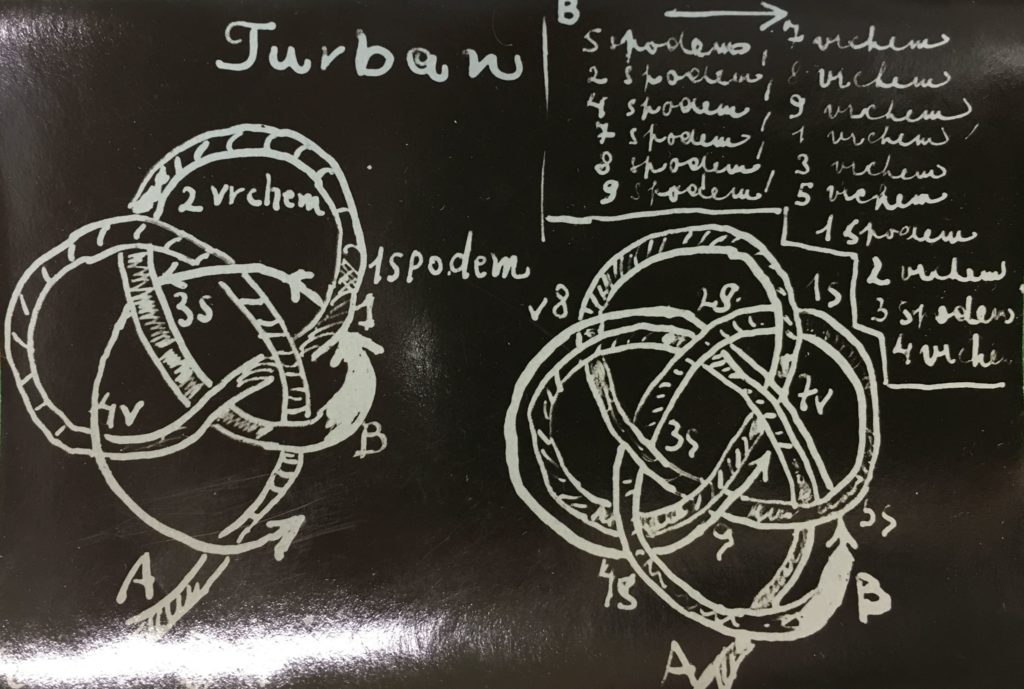 Turban
B
5 spodem, 7 vrchem
2 spodem, 8 vrchem
4 spodem, 9 vrchem,
7 spodem, 1 vrchem
8 spodem, 3 vrchem
9 spodem, 5 vrchem
1 spodem
2 vrchem
3 spodem
4 vrche
2 vrchem
1 spodem
3s
1
4v
B
A
v8
28.
1s
7v
3s
5s
9
4s
B
A